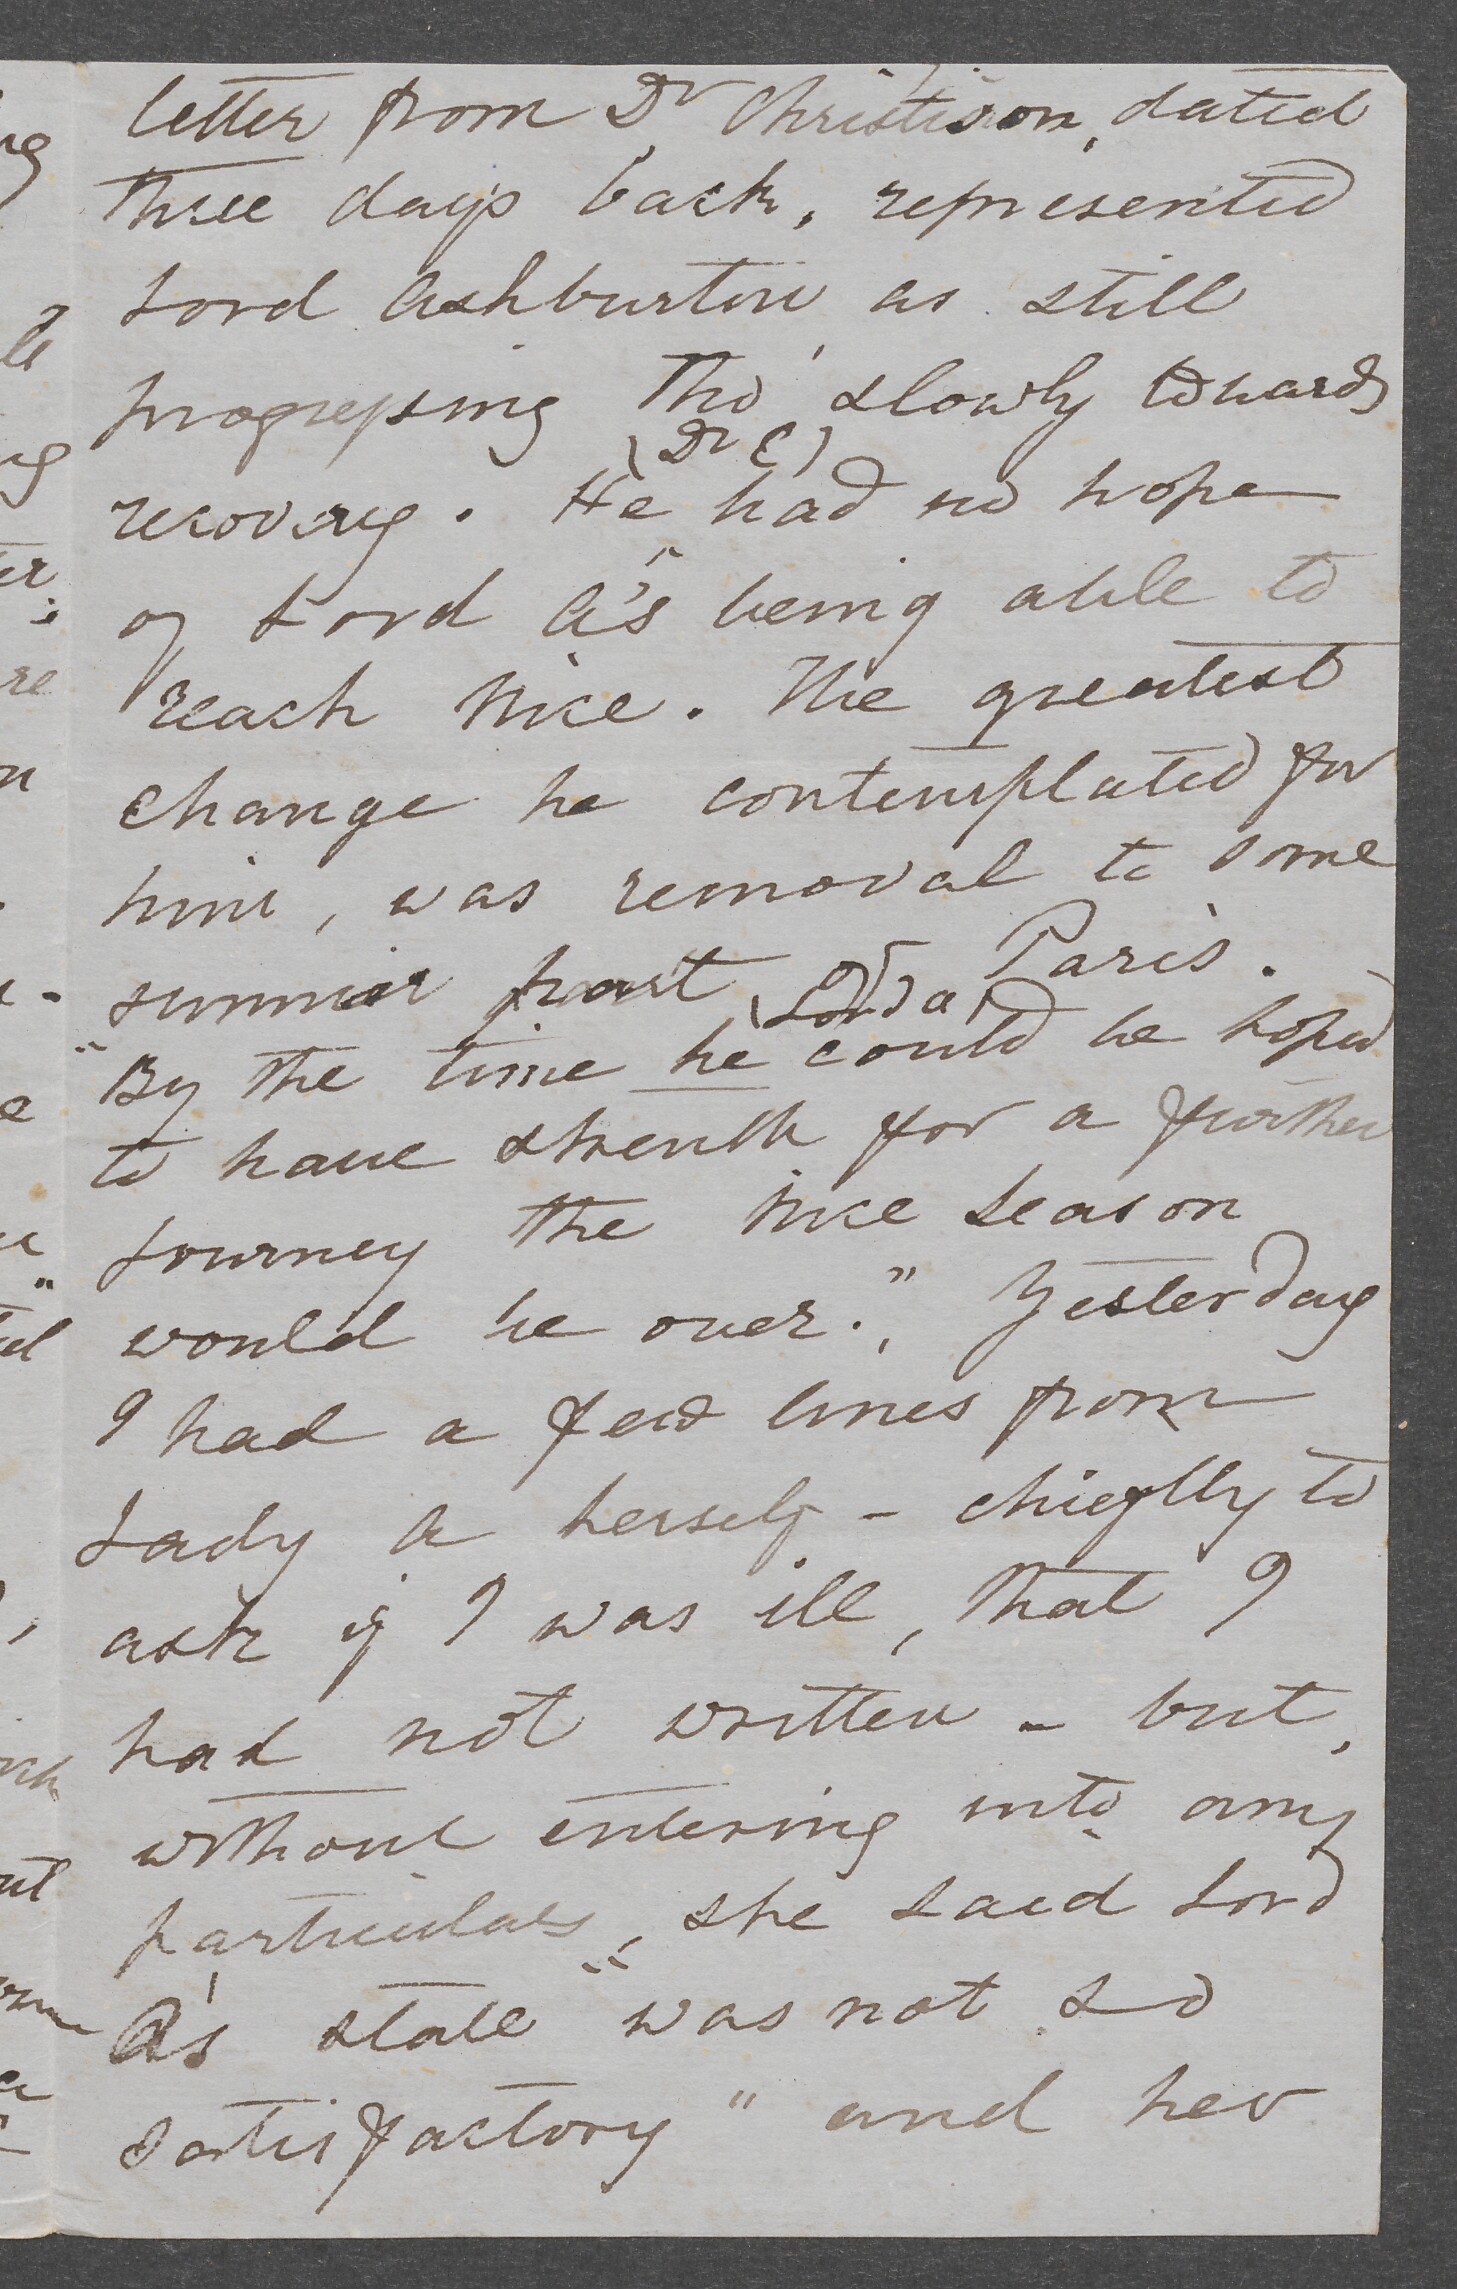 letter from Dr Christison, dated
three days back, represented
Lord Ashburton as still
progressing tho' slowly towards
(Dr C)
recovery. He had no hope
of Lord A's being able to
reach Nice. The greatest
change he contemplated for
him, was removal to some
sunnier part of Paris.
(Lord A)
"By the time he could be hoped
to have strenth for a further
journey the Nice season
would be over." Yesterday
I had a few lines from
Lady A herself – chieflly to
ask if I was ill, that I
had not written – but,
without entering into any
particulars, she said Lord
A's state "was not so
satisfactory" and her